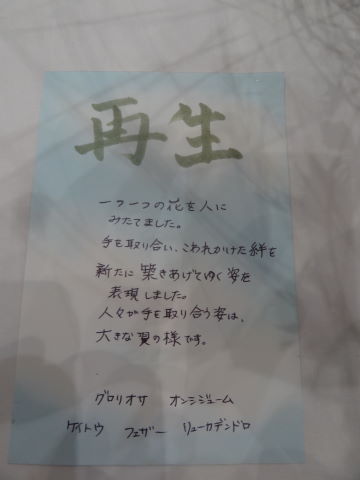 再生
一つ一つの花を人に
みたてました。
手を取り合い、こわれかけた絆を
新たに築きあげてゆく姿を
表現しました。
人々が手を取り合う姿は、
大きな翼の様です。
グロリオサ オンシジューム
ケイトウ フェザー リューカデンドロ